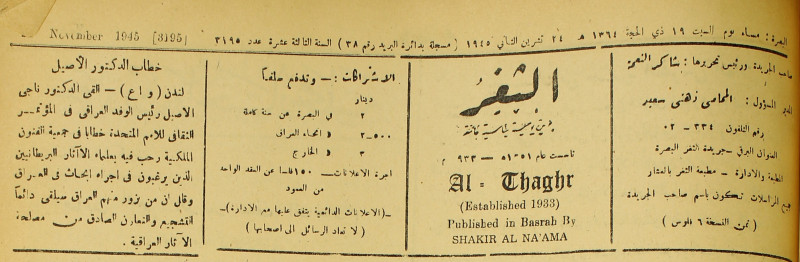 البصرة: مساء يوم السبت ١٩ ذي الحجة ١٣٦٤ هـ ٢٤ تشرين الثاني ١٩٤٥ ( مسجلة بدائرة البريد رقم ٣٨ ) السنة الثالثة عشرة عدد ٣١٩٥
November 1945 [3195]
صاحب الجريدة ورئيس تحريرها: شاكر النعمة
المدير المسؤول: المحامي زهني سعيد
رقم التلفون ٣٣٤ — ٠٢
العنوان البرقي - جريدة الثغر البصرة
الطبعة والادارة - مطبعة الثغر بالعشار
جميع المراسلات تكون باسم صاحب الجريدة
( ثمن النسخة ٦ فلوس )
الثغر
جريدة يومية سياسية
تأسست عام ١٣٥١ — ٩٣٣ م
Al - Thaghr
(Established 1933)
Published in Basrah By
SHAKIR AL NA'AMA
الاشتراكات: - وتدفع سلفا
دينار
٢ في البصرة عن سنة كاملة
٥٠٠-٢ انحاء العراق
٣ في الخارج
اجرة الاعلانات... ١٥٠ فلسا عن العقد الواحد
من العمود
-(الاعلانات الدائمية يتفق عليها مع الادارة)-
( لا تعاد الرسائل الى اصحابها )
خطاب الدكتور الأصيل
لندن ( و ا ع ) - القى الدكتور ناجي
الاصيل رئيس الوفد العراقي في المؤتمر
الثقافي للامم المتحدة خطابا في جمعية الفنون
الملكية رحب فيه بعلماء الآثار البريطانيين
الذين يرغبون في اجراء ابحاث في العراق
وقال ان من يزور منهم العراق سيلقى دائماً
التشجيع والتعاون الصادق من مصلحة
الآثار العراقية .